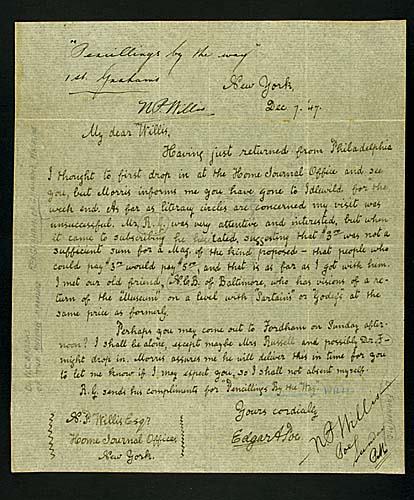 "Pencillings by the way"
1st. Grahams
New York,
N P Willis
Dec 7. '47.
My dear Willis,
Having just returned from Philadelphia
I thought to first drop in at the Home Journal Office and see
you, but Morris informs me you have gone to Idlewild for the
week end. As far as literary circles are concerned my visit was
unsuccessful. Mr. R.G. was very attentive and interested, but when
it came to subscribing he suggesting that $3 was not a
sufficient sum for a Mag. of the kind proposed - that people who
could pay $3 would pay $5, and that is as far as I got with him.
I met our old friend, of Baltimore, who has visions of a re-
turn of the Museum on a level with Sartain's or Godey's at the
same price as formerly.
Perhaps you may come to Fordham on Sunday after-
noon? I shall be alone, except maybe Mrs Russell and possibly Dr. F-
might drop in. Morris assures me he will deliver this in time for you
to let me know if I may expect you, so I shall not absent myself.
R.G. sends his compliments for Pencillings By the Way.
Yours cordially
Edgar A Poe
N. P. Willis Esqr
Home Journal Office
New York.
N P Willis
Poe
Sunday